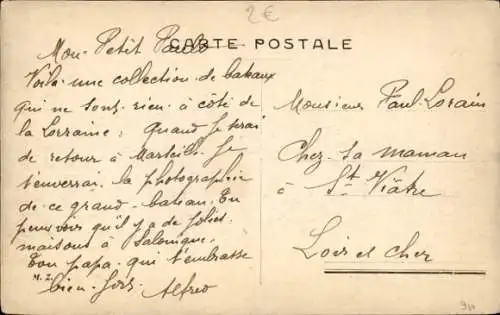 2€
CARTE POSTALE
Mon Petit Paulo
Voilà une collection de bateaux
qui ne sont rien à côté de
la Lorraine, Quand je serai
de retour à Marseille Je
t'enverrai la photographie
de ce grand bateau, Tu
peux voir qu'il y a de jolies
maisons à Salonique,
Ton papa qui t'embrasse
M. Z.
bien fort Alfred
Monsieur Paul Lorain
Chez sa maman
à St Viâtre
Loir et Cher